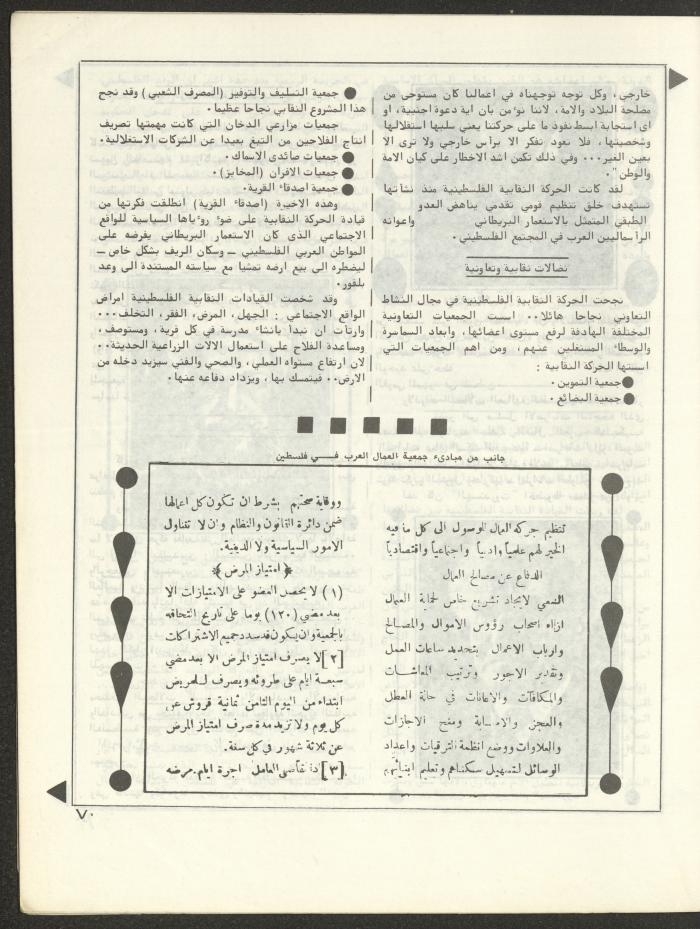 خارجي، وكل توجه توجهناه في اعمالنا كان مستوحى من
مصلحة البلاد والامة، لاننا نوءمن بان اية دعوة اجنبية، او
اى استجابة ابسط نفوذ ما على حركتنا يعني سلبها استقلالها
وشخصيتها، فلا نعود نفكر الا برأس خارجي ولا نرى الا
بعين الغير... وفي ذلك تكمن اشد الاخطار على كيان الامة
والوطن".
لقد كانت الحركة النقابية الفلسطينية منذ نشأتها
تستهدف خلق تنظيم قومي تقدمي يناهض العدو
الطبقي المتمثل بالاستعمار البريطاني واعوانه
الرأسماليين العرب في المجتمع الفلسطيني.
نضالات نقابية وتعاونية
نجحت الحركة النقابية الفلسطينية في مجال النشاط
التعاوني نجاحا هائلا.. اسست الجمعيات التعاونية
المختلفة الهادفة لرفع مستوى اعضائها، وابعاد السماسرة
والوسطاء المستغلين عنهم، ومن اهم الجمعيات التي
اسستها الحركة النقابية :
● جمعية التموين.
● جمعية البضائع.
● جمعية التسليف والتوفير (المصرف الشعبي) وقد نجح
هذا المشروع النقابي نجاحا عظيما.
جمعيات مزارعي الدخان التي كانت مهمتها تصريف
انتاج الفلاحين من التبغ بعيدا عن الشركات الاستغلالية.
● جمعيات صائدى الاسماك.
● جمعيات الافران (المخابز).
● جمعية اصدقاء القرية.
وهذه الاخيرة (اصدقاء القرية) انطلقت فكرتها من
قيادة الحركة النقابية على ضوء روءياها السياسية للواقع
الاجتماعي الذى كان الاستعمار البريطاني يفرضه على
المواطن العربي الفلسطيني ــ وسكان الريف بشكل خاص ــ
ليضطره الى بيع ارضه تمشيا مع سياسته المستندة الى وعد
بلفور.
وقد شخصت القيادات النقابية الفلسطينية امراض
الواقع الاجتماعي : الجهل، المرض، الفقر، التخلف...
وارتأت ان تبدأ بانشاء مدرسة في كل قرية، ومستوصف،
ومساعدة الفلاح على استعمال الالات الزراعية الحديثة..
لان ارتفاع مستواه العملي، والصحي والفني سيزيد دخله من
الارض.. فيتمسك بها، ويزداد دفاعه عنها.
جانب من مبادىء جمعية العمال العرب فـــي فلسطين
تنظيم حركة العمال للوصول الى كل ما فيه
الخير لهم علمياً وادبياً واجتماعياً واقتصادياً
الدفاع عن مصالح العمال
السعي لايجاد تشريع خاص لحماية العمال
ازاء اصحاب رؤوس الاموال والمصالح
وارباب الاعمال بتحديد ساعات العمل
وتقدير الاجور وترتيب المعاشات
والمكافآت والاعانات في حالة العطل
والعجز والاصابة ومنح الاجازات
والعلاوات ووضع انظمة الترقيات واعداد
الوسائل لتسهيل سكناهم وتعليم ابنائهم
ووقاية صحتهم بشرط ان تكون كل اعمالها
ضمن دائرة القانون والنظام وان لا تتناول
الامور السياسية ولا الدينية.
﴿ امتياز المرض ﴾
(١) لا يحصل العضو على الامتيازات الا
بعد مضي (١٢٠) يوما على تاريخ التحاقه
بالجمعية وان يكون قد سدد جميع الاشتراكات
[٢] لا يصرف امتياز المرض الا بعد مضي
سبعة ايام على طروئه ويصرف للمريض
ابتداء من اليوم الثامن ثمانية قروش عن
كل يوم ولا تزيد مدة صرف امتياز المرض
عن ثلاثة شهور في كل سنة.
[٣] اذا تقاضى العامل اجرة ايام مرضه
٧٠